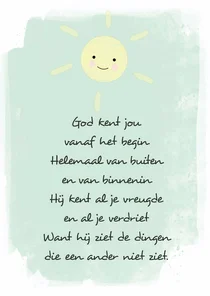 God kent jou
vanaf het begin
Helemaal van buiten
en van binnenin
Hij kent al je vreugde
en al je verdriet
Want hij ziet de dingen
die een ander niet ziet.